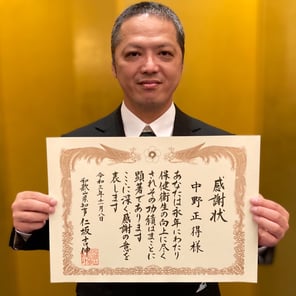 感謝状
中野正得様
あなたは永年にわたり
保健衛生の向上に尽く
されその功績はまことに
顕著であります
ここに深く感謝の意を
表します
令和三年十一月八日
和歌山県知事 仁坂吉伸